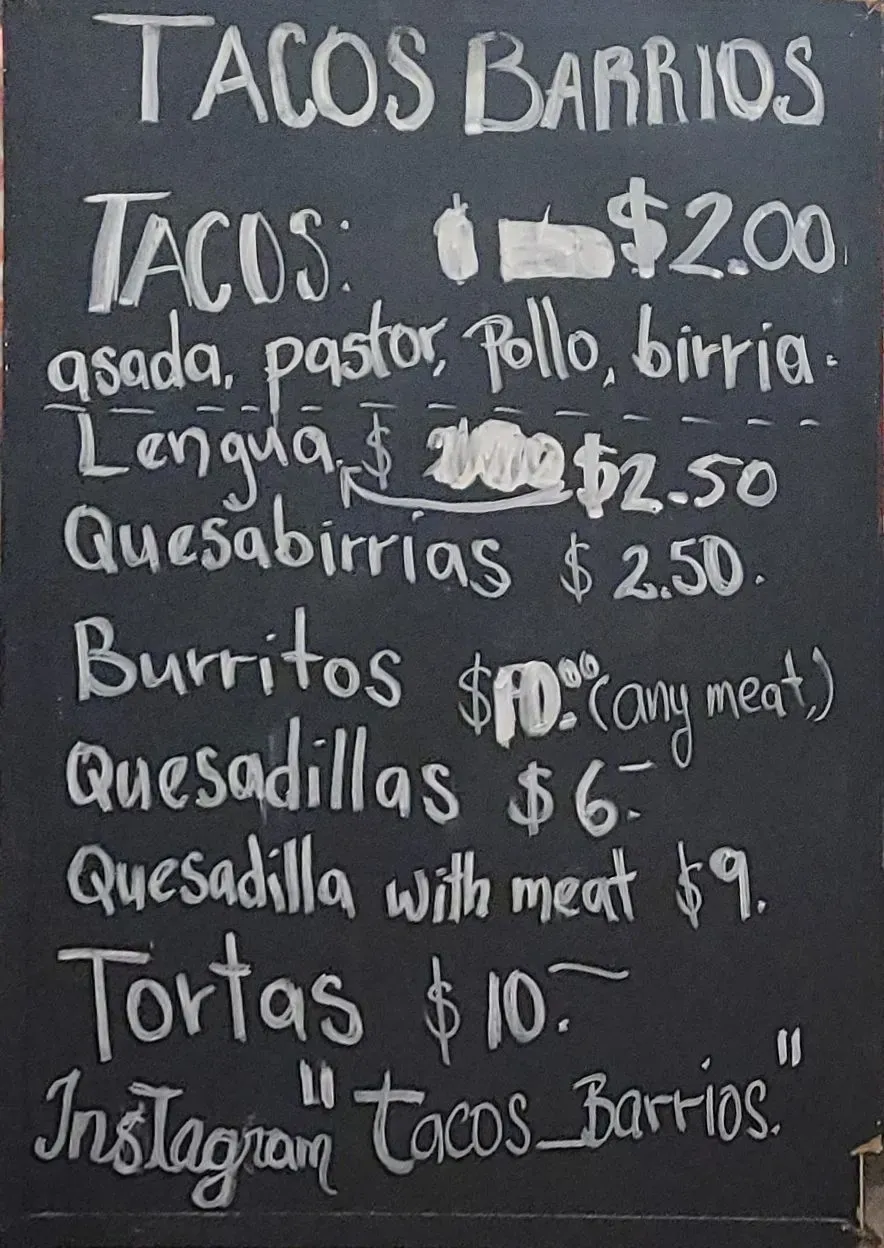 TACOS BARRIOS
TACOS: $2.00
asada, pastor, Pollo, birria.
Lengua. $ $2.50
Quesabirrias $2.50.
Burritos $10.00 (any meat,)
Quesadillas $6.-
Quesadilla with meat $9.
Tortas $10.-
InsTagram "tacos_Barrios."